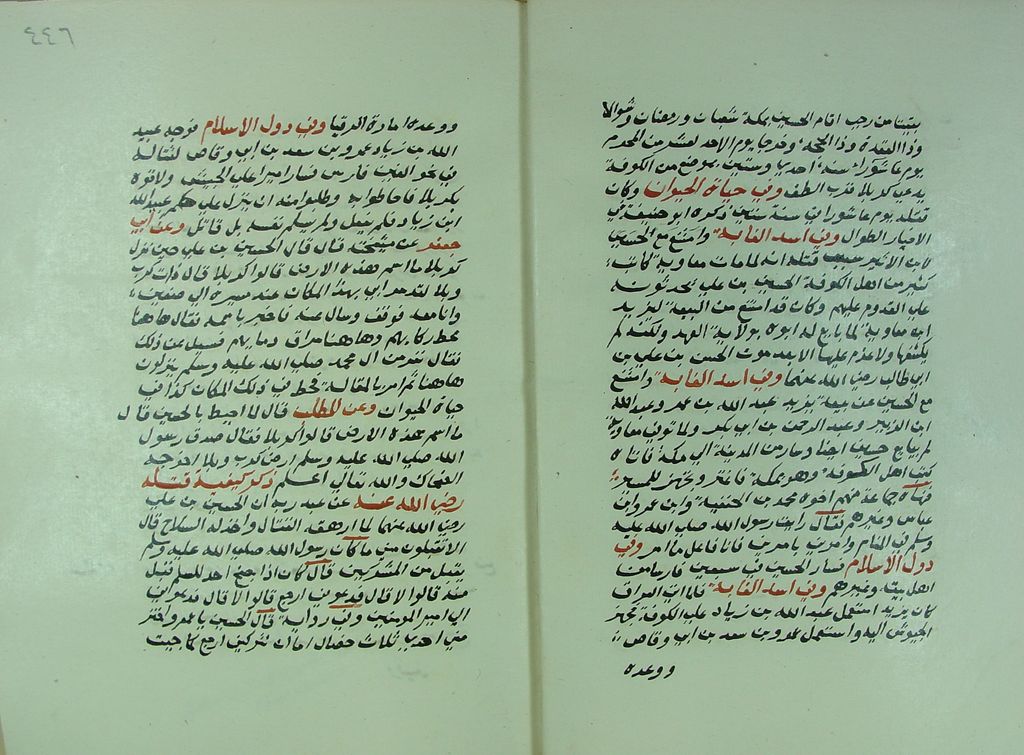 بقيتا من رجب اقام الحسين بمكة شعبان ورمضان وشوالا
وذا القعدة وذا الحجة وخرجا يوم الاحد لعشر من المحرم
يوم عاشوراء سنة احدى وستين بموضع من الكوفة
يدعى كربلا قرب الطف وفي حياة الحيوان وكان
قتله يوم عاشوراء في سنة ستين ذكره ابو حنيفة في
الاخبار الطوال وفي اسد الغابة وامتنع مع الحسين
لابن الاثير سبب قتله انه لما مات معاوية كاتب
كثير من اهل الكوفة الحسين بن علي يحدثونه
على القدوم عليهم وكان قد امتنع من البيعة ليزيد
ابن معاوية لما بايع له ابوه بولاية العهد ولكنه لم
يكشفها ولا عزم عليها الا بعد موت الحسن بن علي بن
ابي طالب رضي الله عنهما وفي اسد الغابة وامتنع
مع الحسين عن بيعة يزيد عبد الله بن عمر وعبد الله
ابن الزبير وعبد الرحمن بن ابي بكر ولما توفي معاوية
لم يبايع حسين ايضا وسار من المدينة الى مكة فاتاه
كتب اهل الكوفة وهو بمكة فاغتر وتجهز للمسير
فنهاه جماعة منهم اخوه محمد بن الحنفية وابن عمر وابن
عباس وغيرهم فقال رايت رسول الله صلى الله عليه
وسلم في المنام وامرني بامر فانا فاعل ما امر وفي
دول الاسلام فسار الحسين في سبعين فارسا من
اهل بيته وغيرهم وفي اسد الغابة فلما اتى العراق
كان يزيد استعمل عبيد الله بن زياد على الكوفة فجهز
الجيوش اليه واستعمل عمرو بن سعد بن ابي وقاص
ووعده
٤٤٦
ووعده امارة الريا وفي دول الاسلام فوجه عبيد
الله بن زياد عمرو بن سعد بن ابي وقاص لقتاله
في نحو الفين فارس فسار اميرا على الجيش ولاقوه
بكربلا فاحاطوا به وطلبوا منه ان ينزل على حكم عبيد الله
ابن زياد فلم يفعل ولم يسلم نفسه بل قاتل وعن ابي
جعفر عن مشيخته قال قال الحسين بن علي حين نزل
كربلا ما اسم هذه الارض قالوا كربلا قال ذات كرب
وبلا لقد مر ابي بهذا المكان عند مسيره الى صفين
وانا معه فوقف وسال عنه فاخبر باسمه فقال هاهنا
محط ركابهم وهاهنا مراق دمائهم فسئل عن ذلك
فقال نفر من ال محمد صلى الله عليه وسلم ينزلون
هاهنا ثم امر باثقاله فحط في ذلك المكان كذا في
حياة الحيوان وعن المطلب قال لما احيط بالحسين قال
ما اسم هذه الارض قالوا كربلا فقال صدق رسول
الله صلى الله عليه وسلم ارض كرب وبلا اخرجه
الضحاك والله تعالى اعلم ذكر كيفية قتله
رضي الله عنه عن عبد ربه ان الحسين بن علي
رضي الله عنهما لما ارهقه القتال واخذ له السلاح قال
الا تقبلون مني ما كان رسول الله صلى الله عليه وسلم
يقبل من المشركين قال كان اذا جنح احد للسلم قبل
منه قالوا لا قال فدعوني ارجع قالوا لا قال فدعوني اتي
الى امير المومنين وفي رواية قال الحسين يا عمرو اختر
مني احدى ثلاث خصال اما ان تتركني ارجع كما جيت